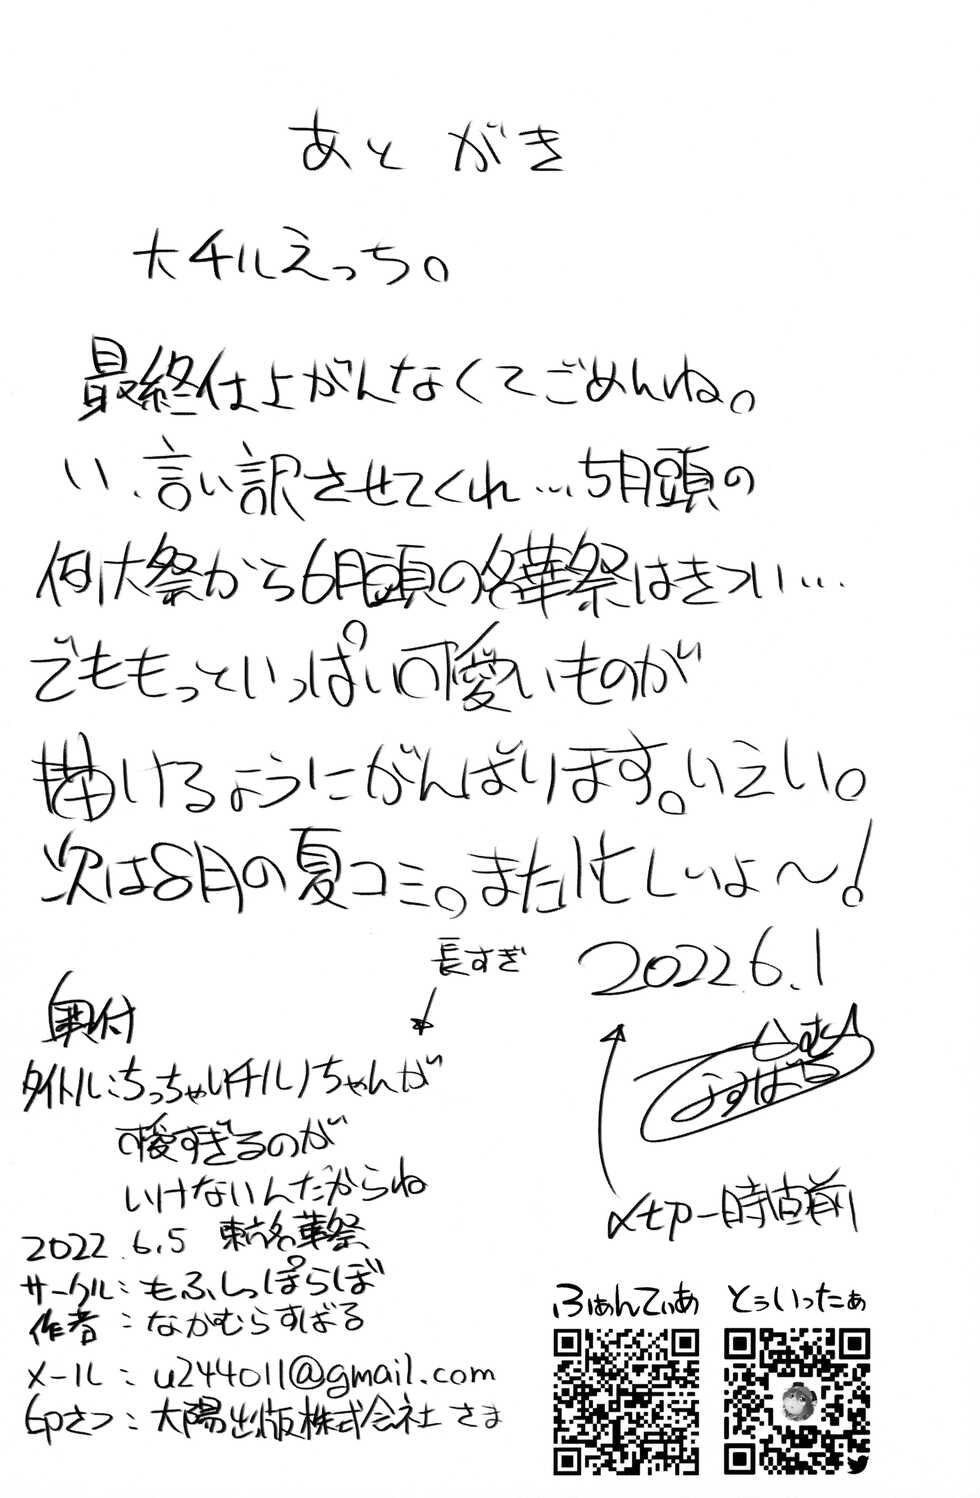 あとがき
大チルえっち。
最終仕上がんなくてごめんね。
い、言い訳させてくれ…5月頭の
例大祭から6月頭の名華祭はきつい…
でももっといっぱい可愛いものが
描けるようにがんばります。いえい。
次は8月の夏コミ。また忙しいよ～!
2022.6.1
〆切一時間前
長すぎ
奥付
タイトル:ちっちゃいチルノちゃんが
可愛すぎるのが
いけないんだからね
2022.6.5 東方名華祭
サークル:もふしっぽらぼ
作者:なかむらすばる
メール:u244011@gmail.com
印さつ:太陽出版株式会社さま
ふぁんてぃあ
とぅいったぁ